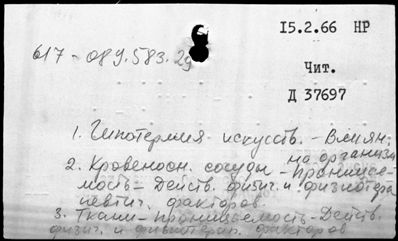 I5.2.66 НР
617-089.583.29
Чит.
Д 37697
1. Гипотермия искусств. - Влиян.
на организм
2. Кровеносн. сосуды - Проницае-
мость - Действ. физич. и физиотера
певтич. факторов.
3. Ткани - проницаемость - Действ.
физич. и физиотерап. факторов